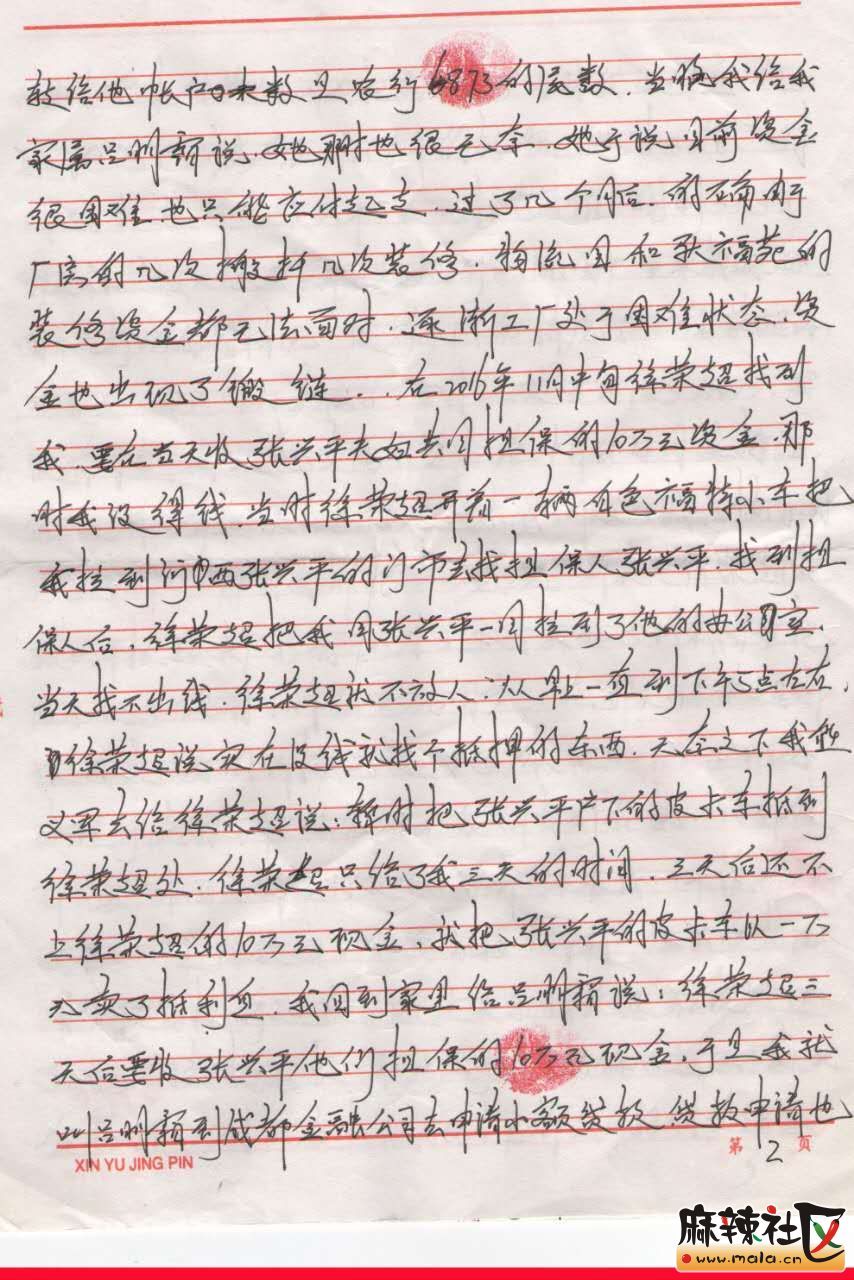 转给他帐户 数是农行6873的尾数.当晚我给我
家属吕明霜说.她那时也很无奈.她于说目前资金
很困难也只能应付起走.过了几个月后.的
厂房的几次搬拆几次装修.物流园和歌福苑的
装修资金都无法面对.逐渐工厂处于困难状态.资
金也出现了锻链..在2016年11月中旬徐荣超找到
我.要在当天收张兴平夫妇共同担保的10万元资金.那
时我没得钱.当时徐荣超开着一辆白色福特小车把
我拉到河西张兴平的门市去找担保人张兴平.找到担
保人后.徐荣超把我同张兴平一同拉到了他的办公室.
当天找不出钱.徐荣超就不放人.从早上一直到下午5点左右.
徐荣超说实在没钱就找个抵押的东西.无奈之下我
去给徐荣超说:暂时把张兴平户下的皮卡车抵到
徐荣超处.徐荣超只给了我三天的时间.三天后还不
上徐荣超的10万元现金.我把张兴平的皮卡车以一万
元卖了抵利息.我回到家里给吕明霜说:徐荣超三
天后要收张兴平他们担保的10万元现金.于是我就
叫吕明霜到成都金融公司去申请小额贷款.贷款申请也
XIN YU JING PIN
第2页
麻辣社区
www.mala.cn